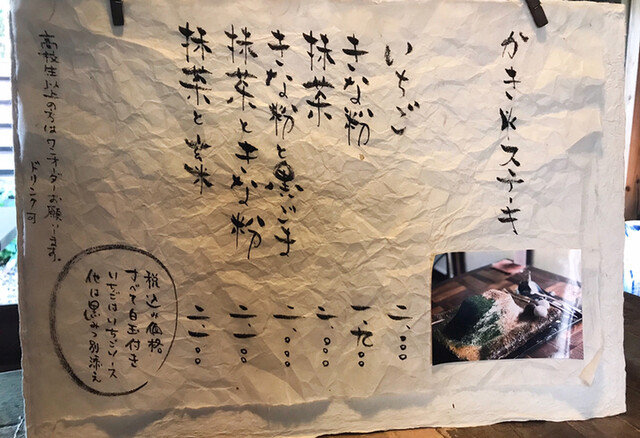 かき氷ステーキ
いちご 二.〇〇〇
きな粉 一.九〇〇
抹茶 二.〇〇〇
きな粉と黒ごま 二.〇〇〇
抹茶ときな粉 二.一〇〇
抹茶と玄米 二.一〇〇
税込の価格。
すべて白玉付き
いちごはいちごソース
他は黒みつ別添え
高校生以上の方はワンオーダーお願いします。
ドリンク可